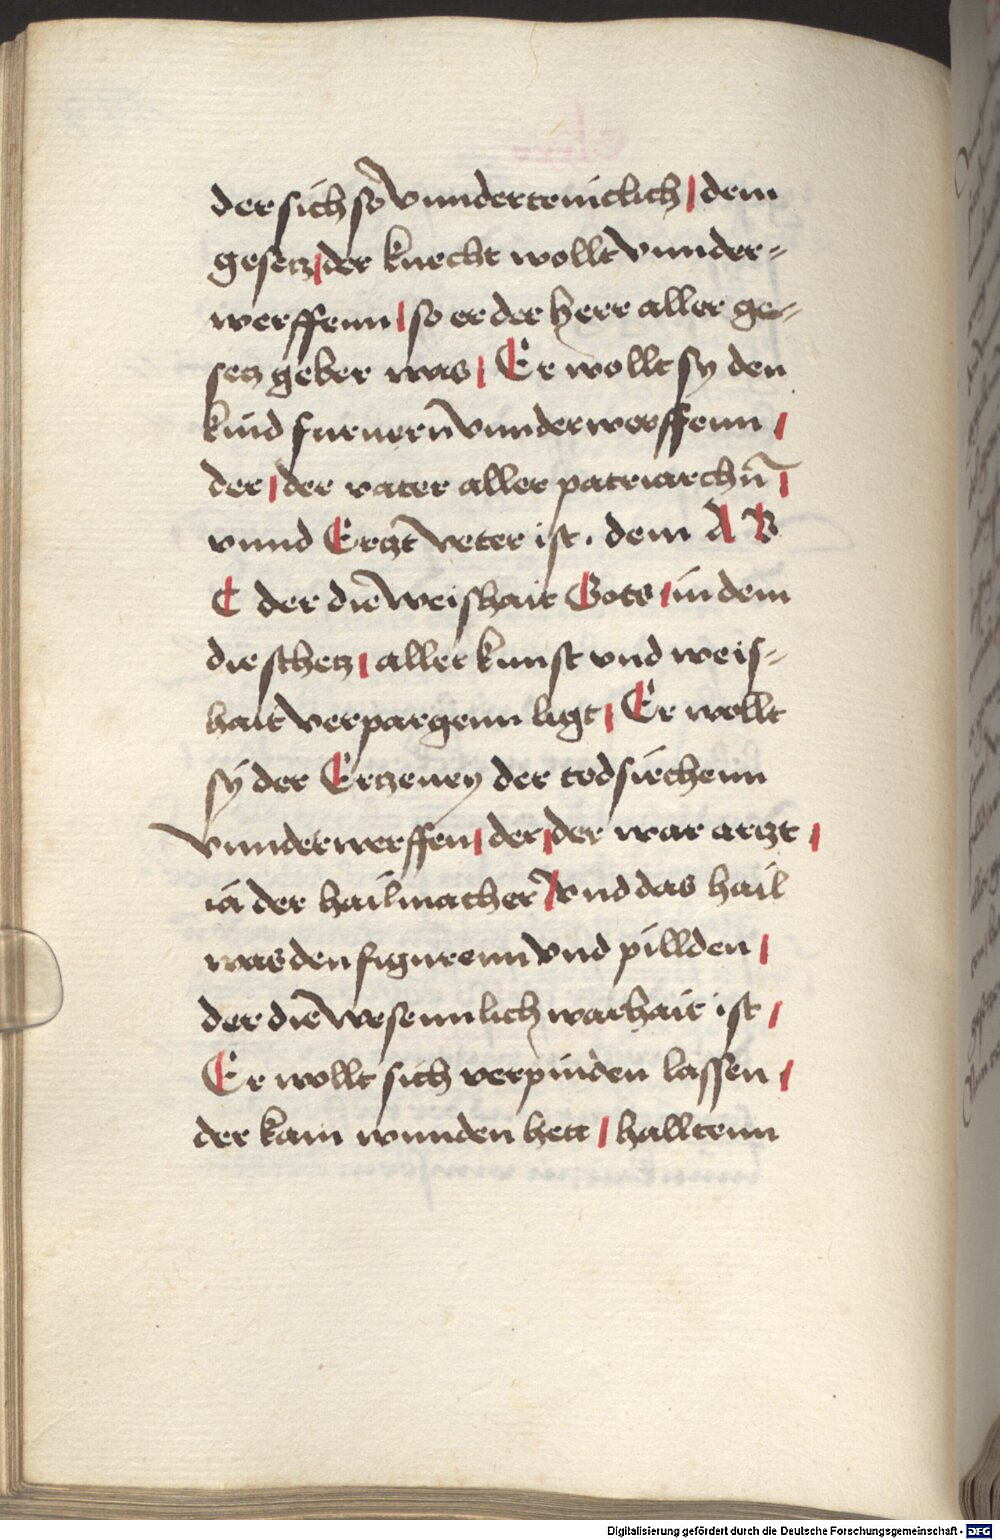 der sich so vnnderteniclich | dem
gesetz | der knecht wollt vnnder-
werffenn | so er der herr aller ge-
setz geber was | Er wollt sy den
kind furnern̄ vnnderwerffenn |
der | der vater aller patriarchn̄ |
vnnd Erczt veter ist. dem A B
C der die weishait Gots | in dem
die schetz | aller kunst vnd weis-
hait verpargenn ligt | Er wollt
sy der Ertzeney der todsiechenn
vnnderwerffen | der | der war artzt |
ia der hailmacher | vnd das hail
was den figurenn vnd pillden |
der die wesennlich warhait ist |
Er wollt sich verpinden lassen |
der kain wunden hett | halltenn
Digitalisierung gefördert durch die Deutsche Forschungsgemeinschaft - DFG